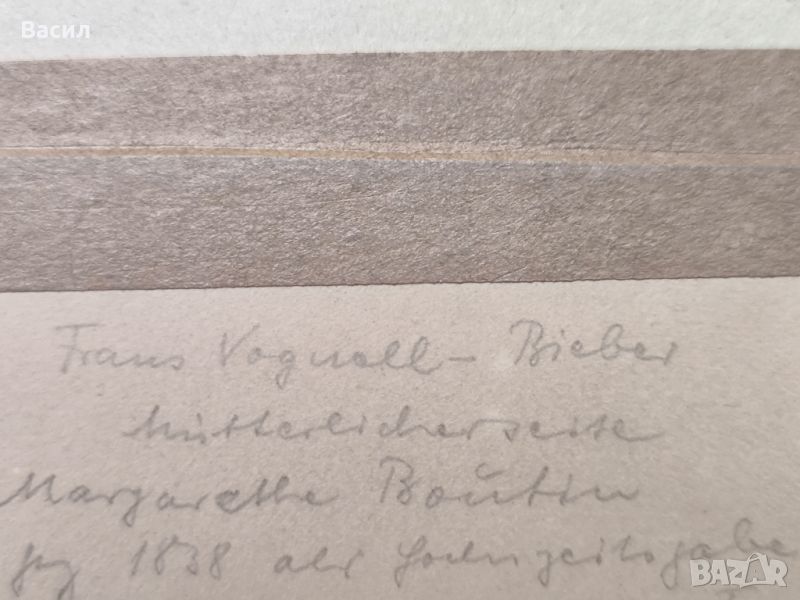 Васил
Frans Vognoll - Bieber
Mütterlicherseite
Margarethe Boutin
gez 1838 als Hochzeitsgabe
BAZAR